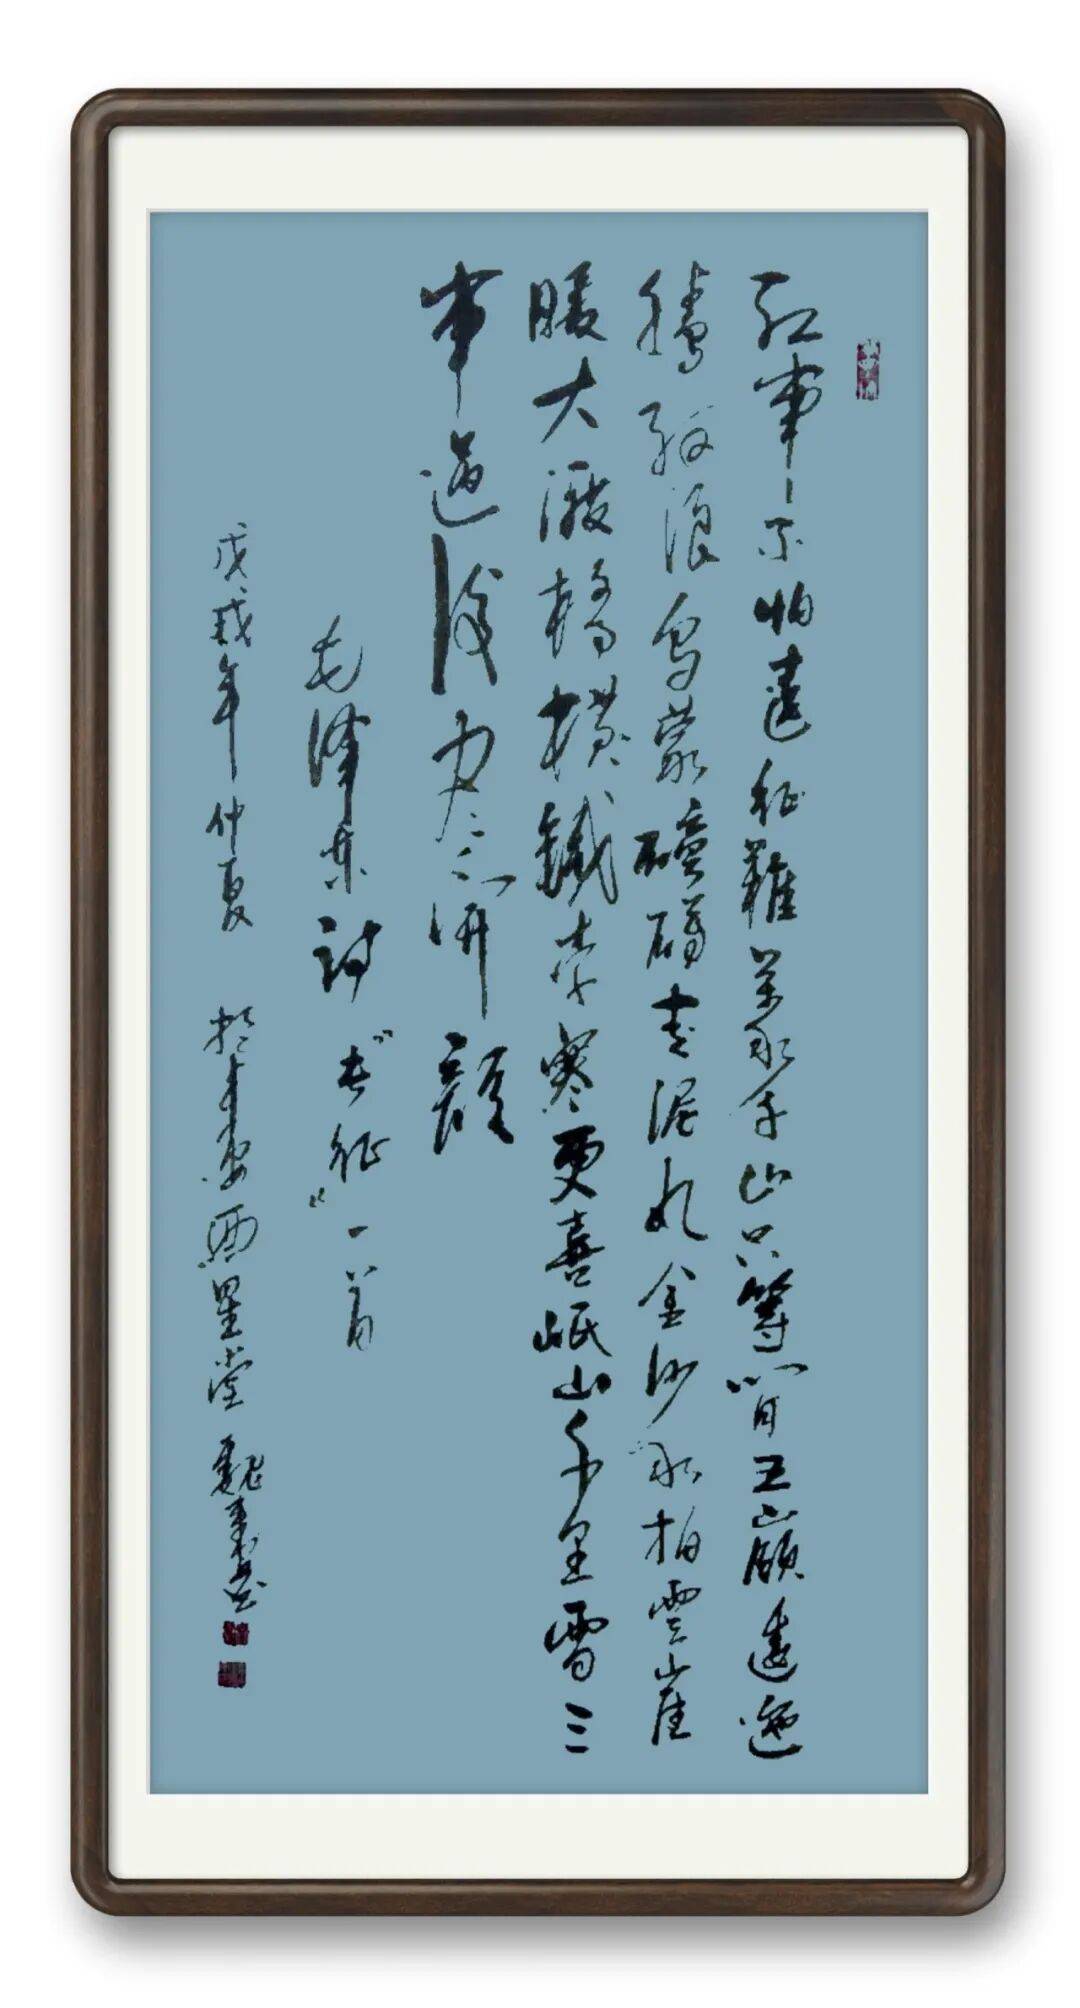 紅軍不怕遠征難萬水千山只等閒五嶺逶迤
騰細浪烏蒙磅礴走泥丸金沙水拍雲崖
暖大渡橋橫鐵索寒更喜岷山千里雪三
軍過後盡開顏
毛澤東詩“長征”一首
戊戌年仲夏 於 堂 魏